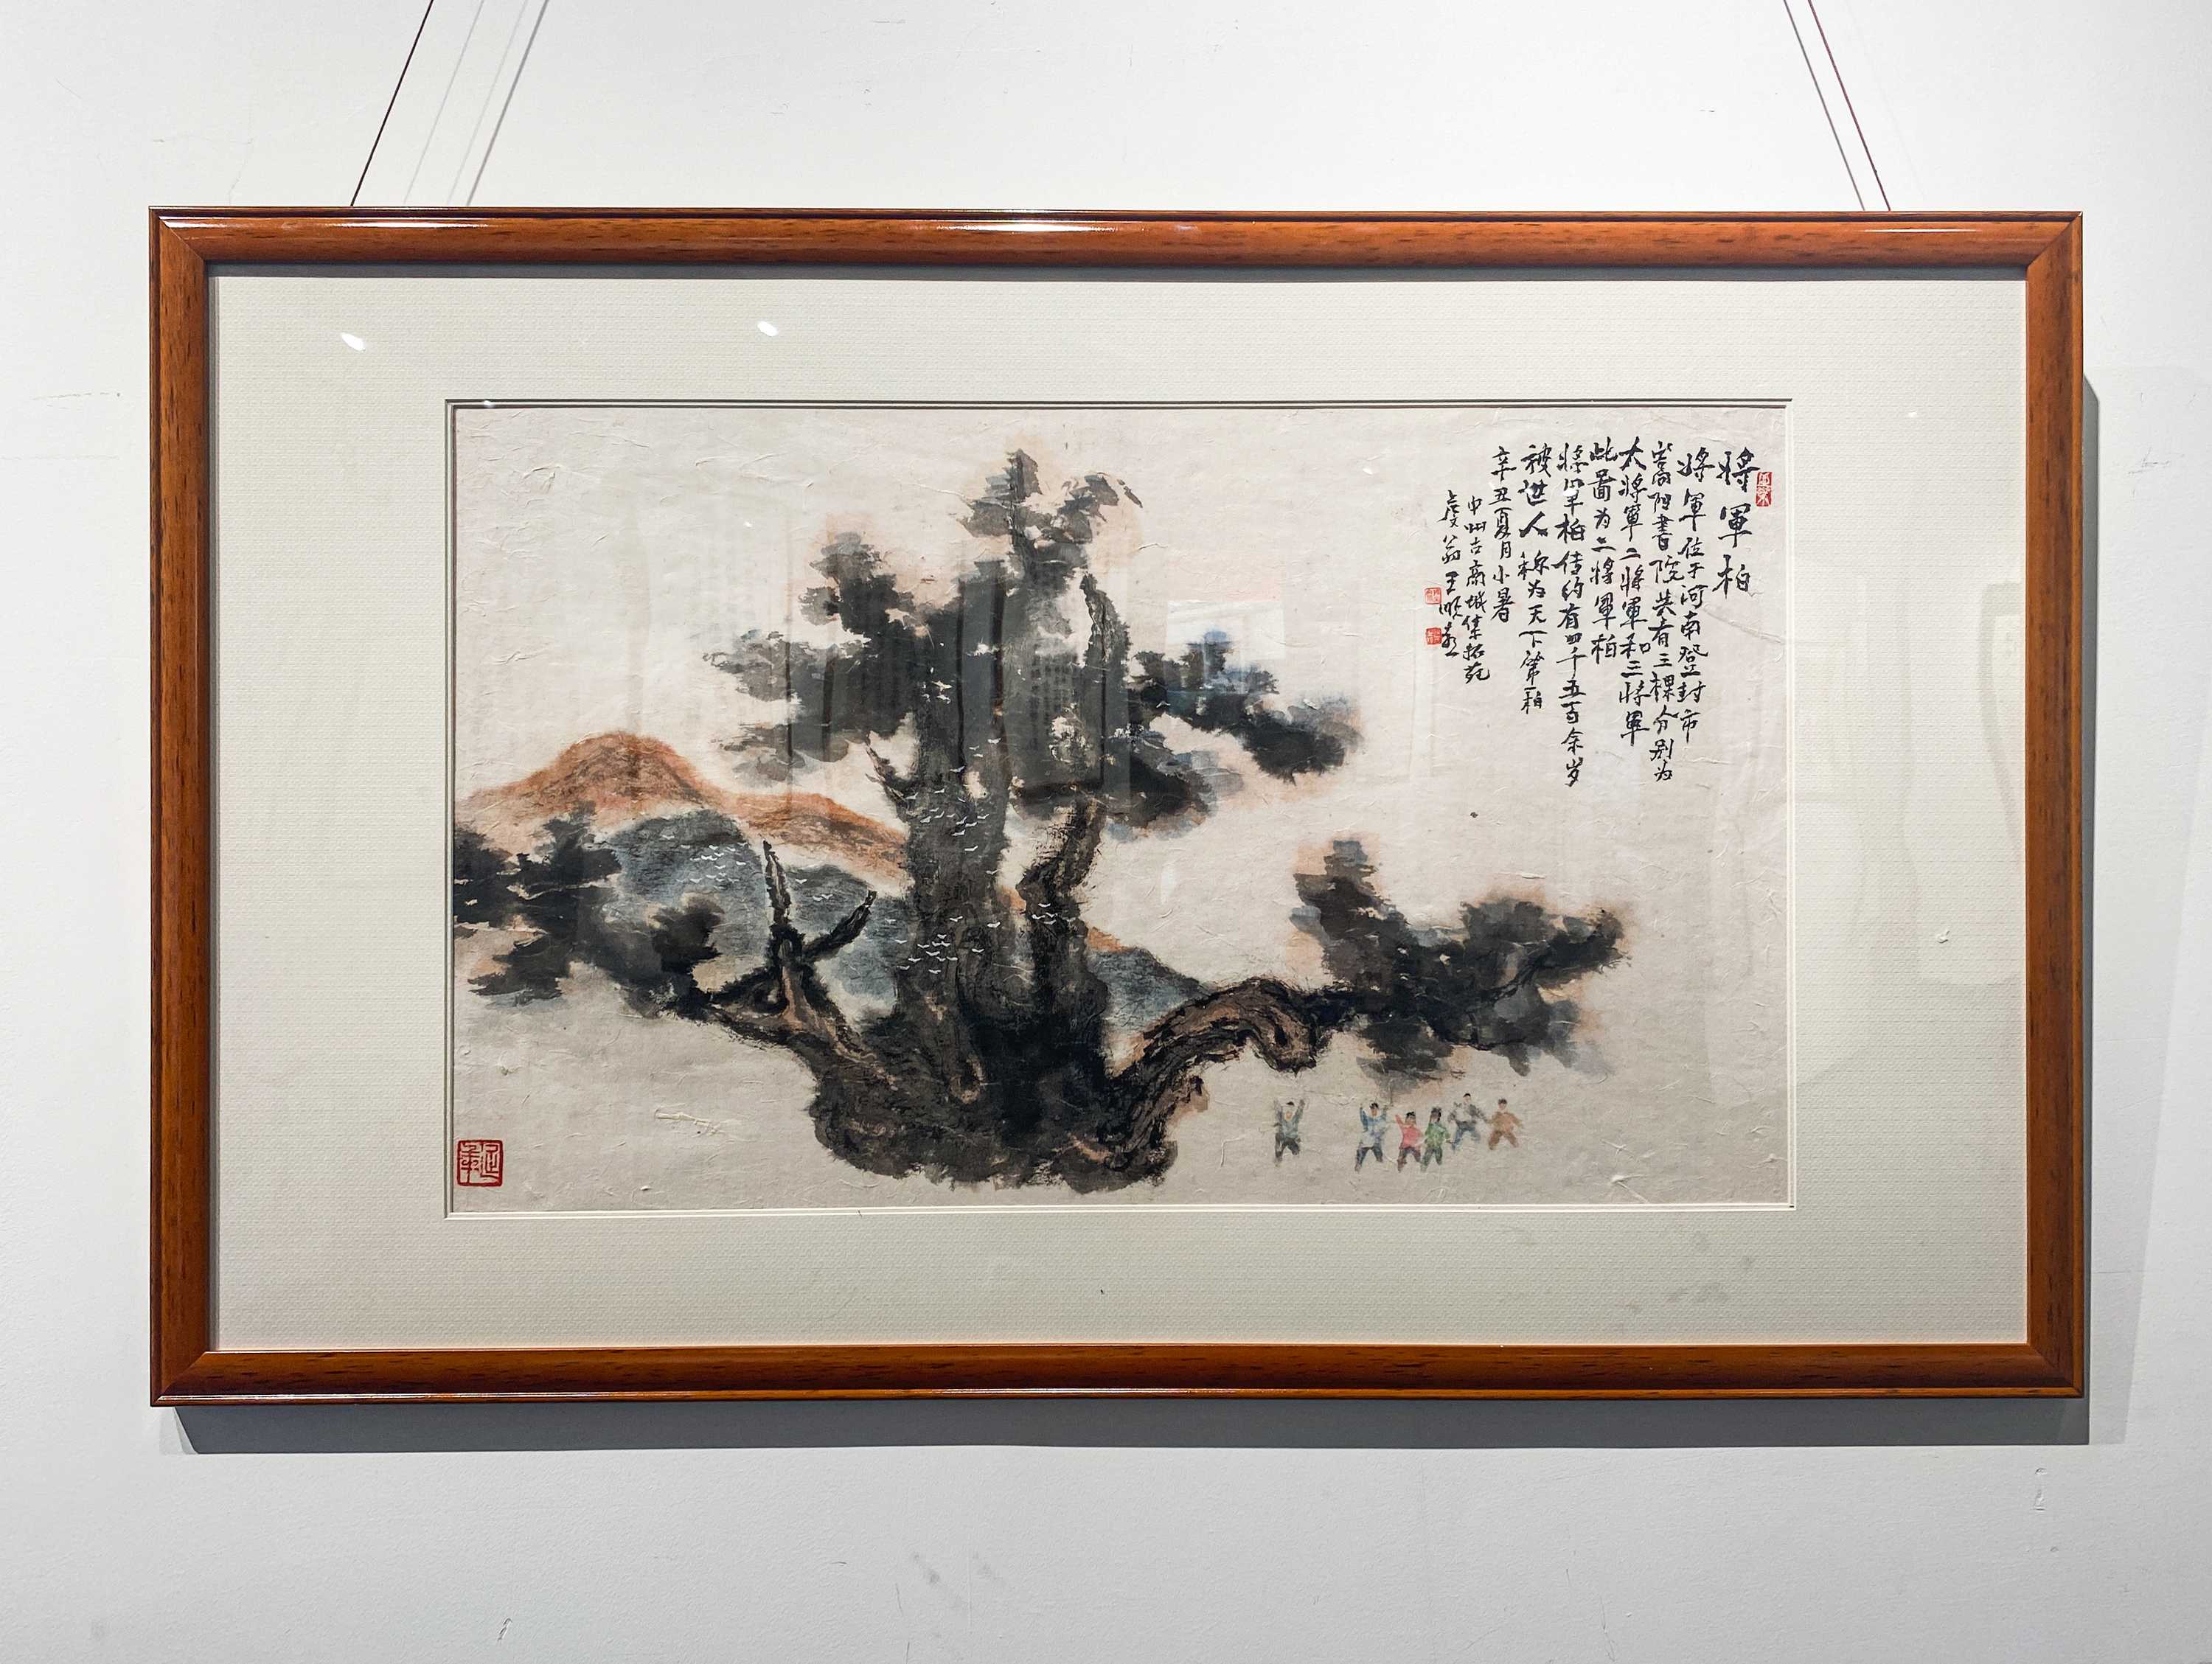 將軍柏
將軍位于河南登封市
嵩阳書院共有三棵分别为
大將軍二將軍和三將軍
此圖为二將軍柏
將軍柏传约有四千五百余岁
被世人称为天下第一柏
辛丑夏月小暑
中州古商城集拓苑
翁王顺